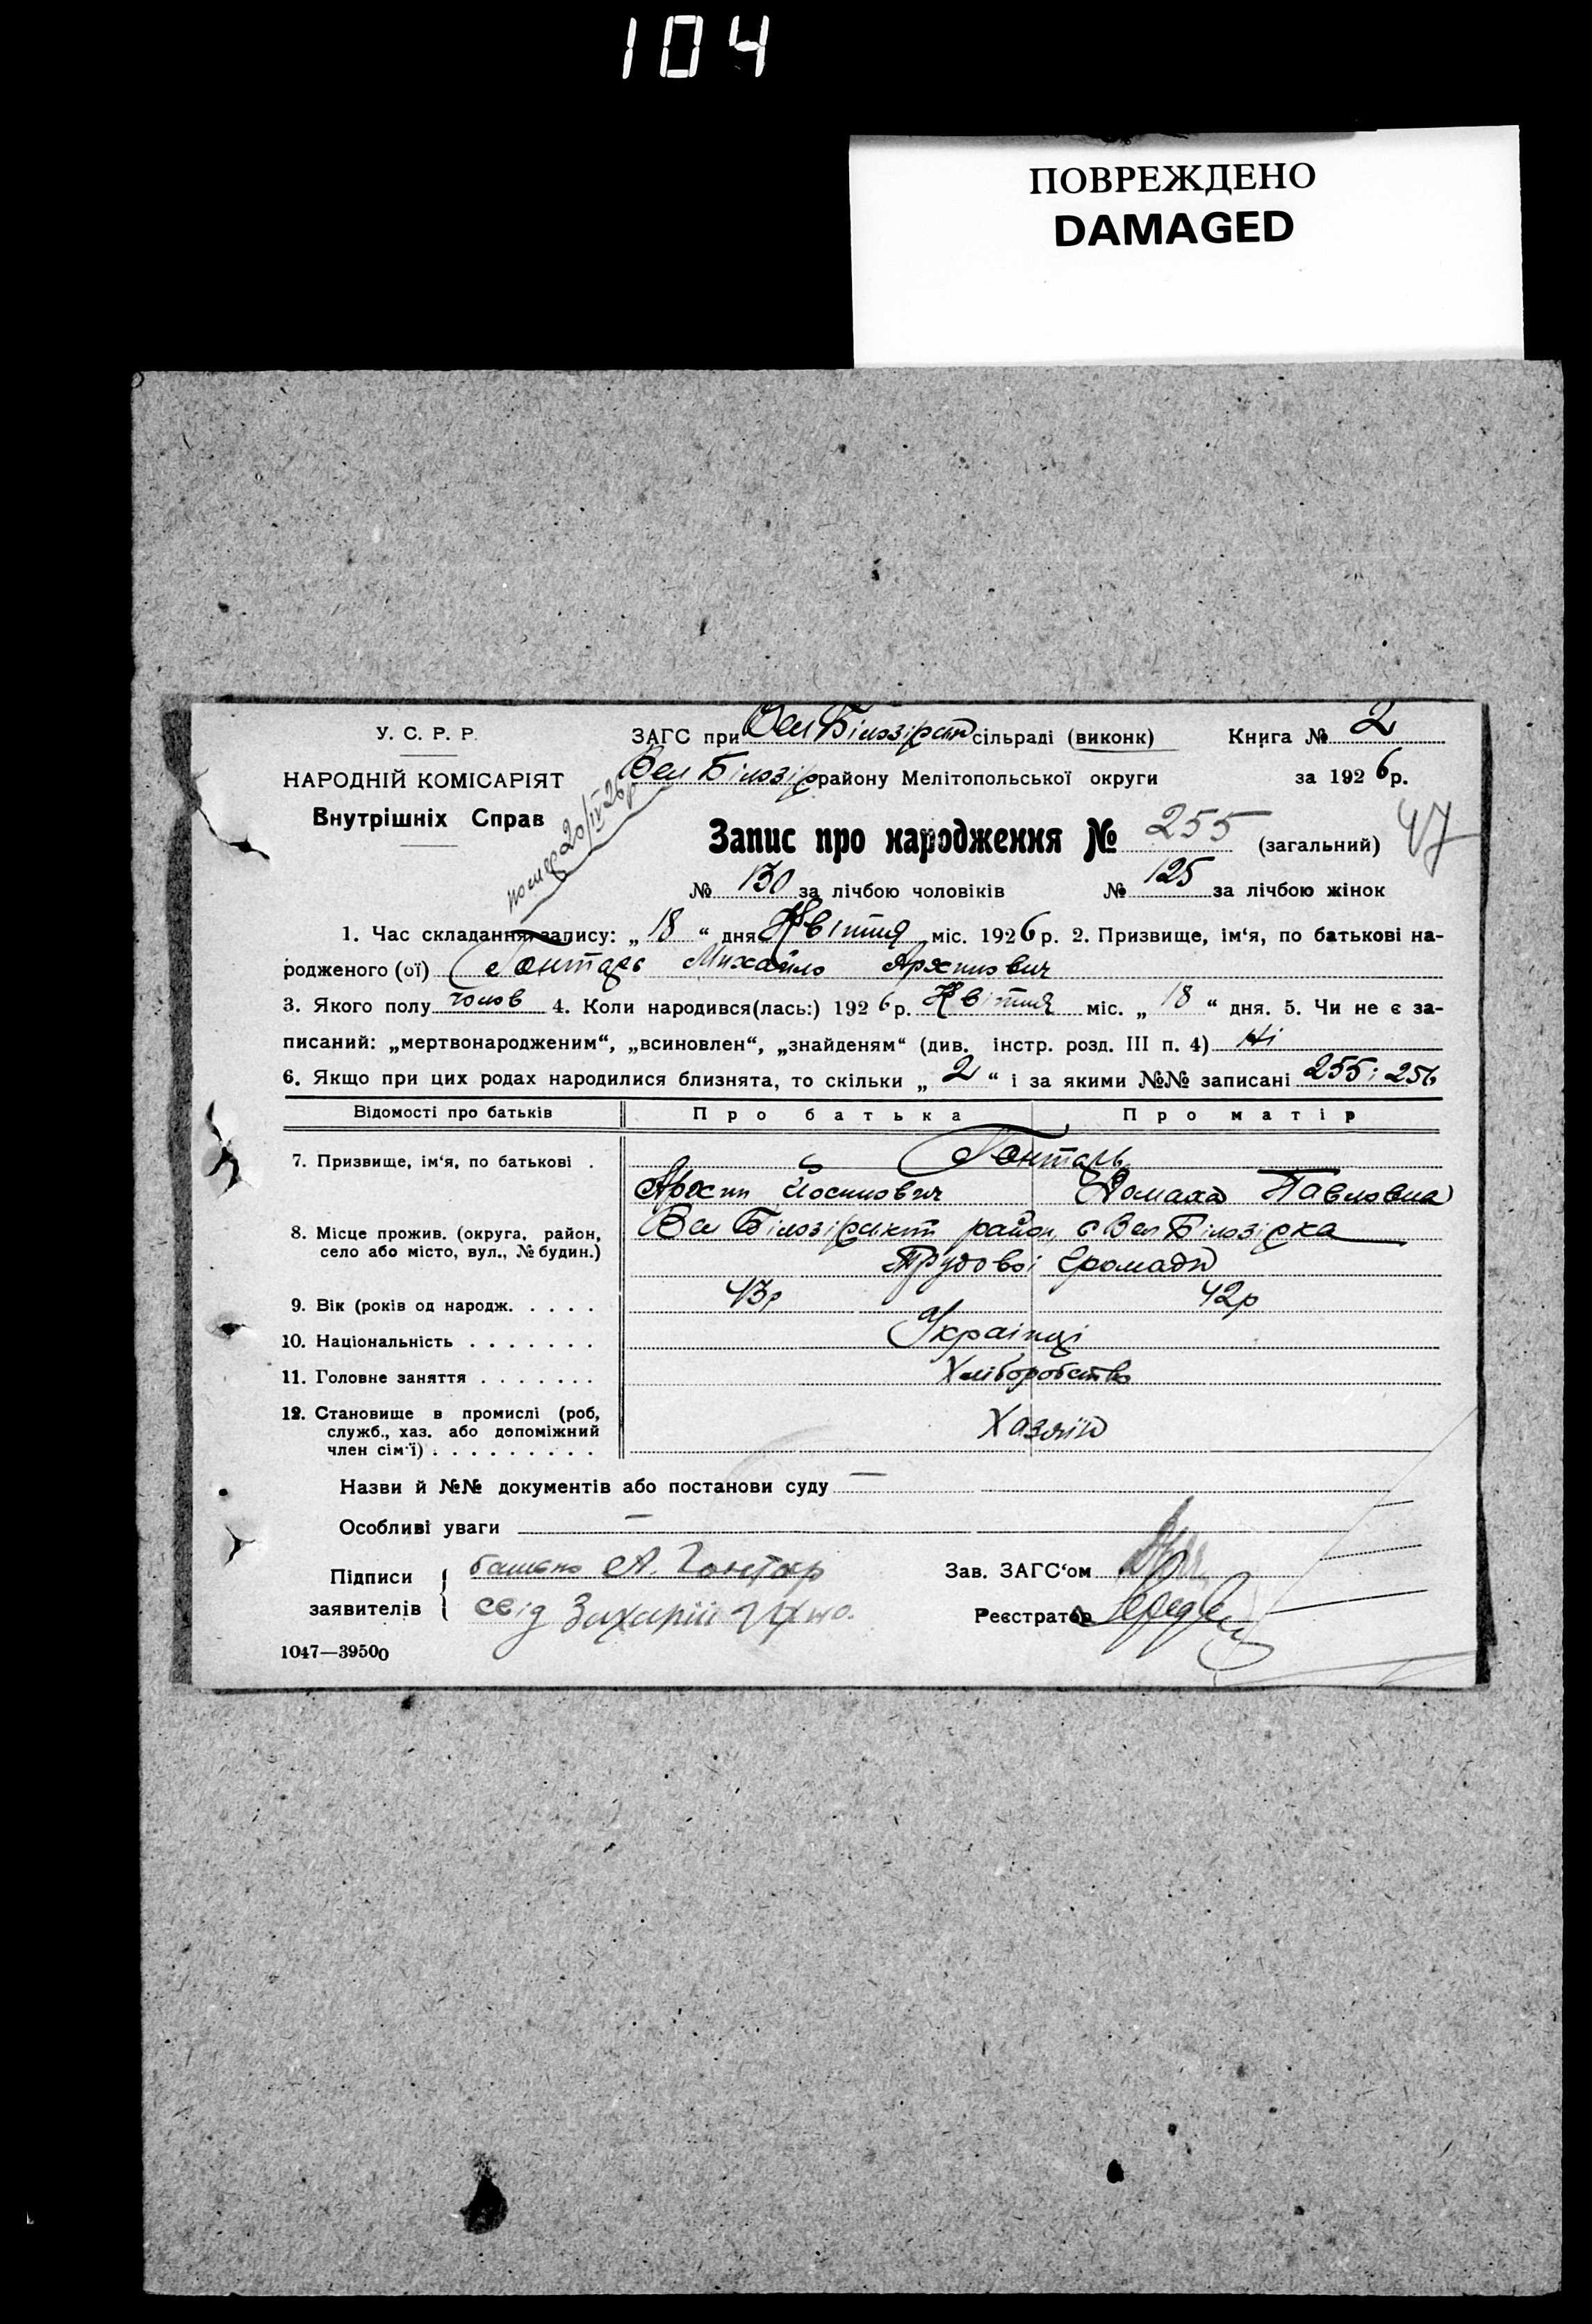 104
ПОВРЕЖДЕНО
DAMAGED
У. С. Р. Р.
НАРОДНІЙ КОМІСАРІЯТ
Внутрішніх Справ
ЗАГС при Вел Білозірськ сільраді (виконк) Книга № 2
Вел Білозір району Мелітопольської округи за 1926 р.
20/IV 26р
Запис про народження № 255 (загальний) 47
№ 130 за лічбою чоловіків № 125 за лічбою жінок
1. Час складання запису: „ 18 “ дня Квітня міс. 1926 р. 2. Призвище, ім‘я, по батькові на-
родженого (ої) Гонтарь Михайло Архипович
3. Якого полу чолов 4. Коли народився(лась:) 1926 р. Квітня міс. „ 18 “ дня. 5. Чи не є за-
писаний: „мертвонародженим“, „всиновлен“, „знайденям“ (див. інстр. розд. III п. 4) Ні
6. Якщо при цих родах народилися близнята, то скільки „ 2 “ і за якими №№ записані 255 і 256
Відомості про батьків Про батька Про матір
7. Призвище, ім‘я, по батькові . Гонтарь
Архип Йосипович Домаха Павловна
8. Місце прожив. (округа, район,
село або місто, вул., № будин.)
Вел Білозірськ район, с Вел Білозірка
Трудової Громади
9. Вік (років од народж. . . . . 43р 42р
10. Національність . . . . . . . Українці
11. Головне заняття . . . . . . . Хліборобство
12. Становище в промислі (роб,
служб., хаз. або допоміжний
член сім‘ї) . . . . . . . . . Хазяїн
Назви й №№ документів або постанови суду —
Особливі уваги —
Підписи
заявителів
батько А. Гонтар
свід Захарій
Зав. ЗАГС‘ом
Реєстратор
1047—39500